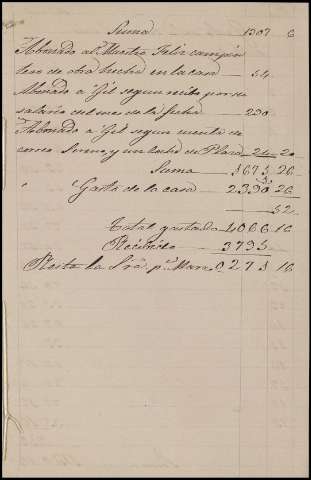 Suma 1307 6
Abonado al Maestro Feliz carpin
tero de obra hecha en la casa 84
Abonado á Gil segun recibo por su
salario del mes de la fecha 230
Abonado á Gil segun cuenta de
correo 24 20
Suma 1675 26
" Gasto de la casa 2390 26
52
Total gastado 4066 16
Recibido 3793
Resta la Sra. pa. Marzo 0273 16